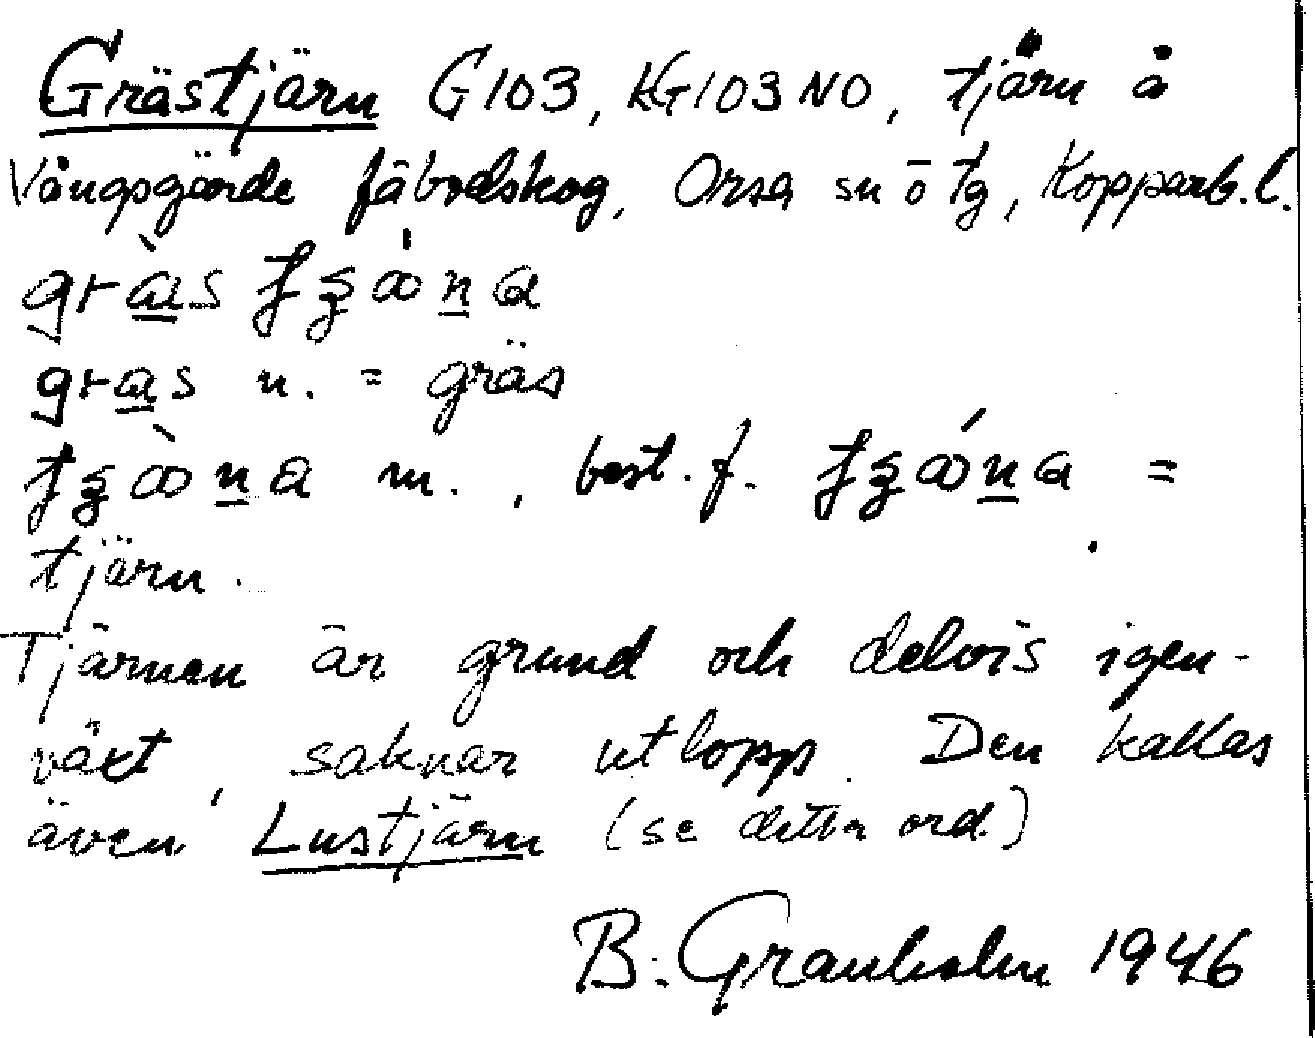 Grästjärn G103, KG103NO, tjärn å
Vångsgärde fäbodskog, Orsa sn o tg, Kopparb.l.
gras n. = gräs
m., best. f. =
tjärn.
Tjärnen är grund och delvis igen-
växt, saknar utlopp. Den kallas
även Lustjärn (se detta ord.)
B. Granholm 1946